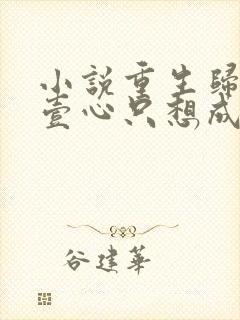 小説重生歸
壹心只想成
谷建華